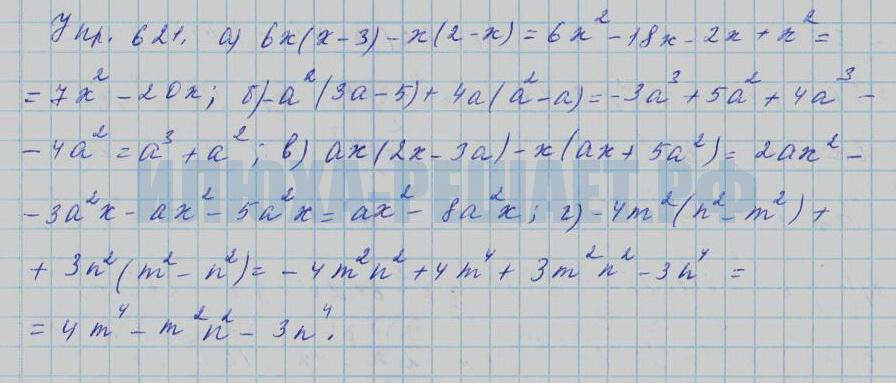 Упр. 621. а) 6x(x-3)-x(2-x)=6x²-18x-2x+x²=
=7x²-20x; б)-a²(3a-5)+4a(a²-a)=-3a³+5a²+4a³-
-4a²=a³+a²; в) ax(2x-3a)-x(ax+5a²)=2ax²-
ИЛЮХА-РЕШАЕТ.РФ
-3a²x-ax²-5a²x=ax²-8a²x; г)-4m²(n²-m²)+
+3n²(m²-n²)=-4m²n²+4m⁴+3m²n²-3n⁴=
=4m⁴-m²n²-3n⁴.